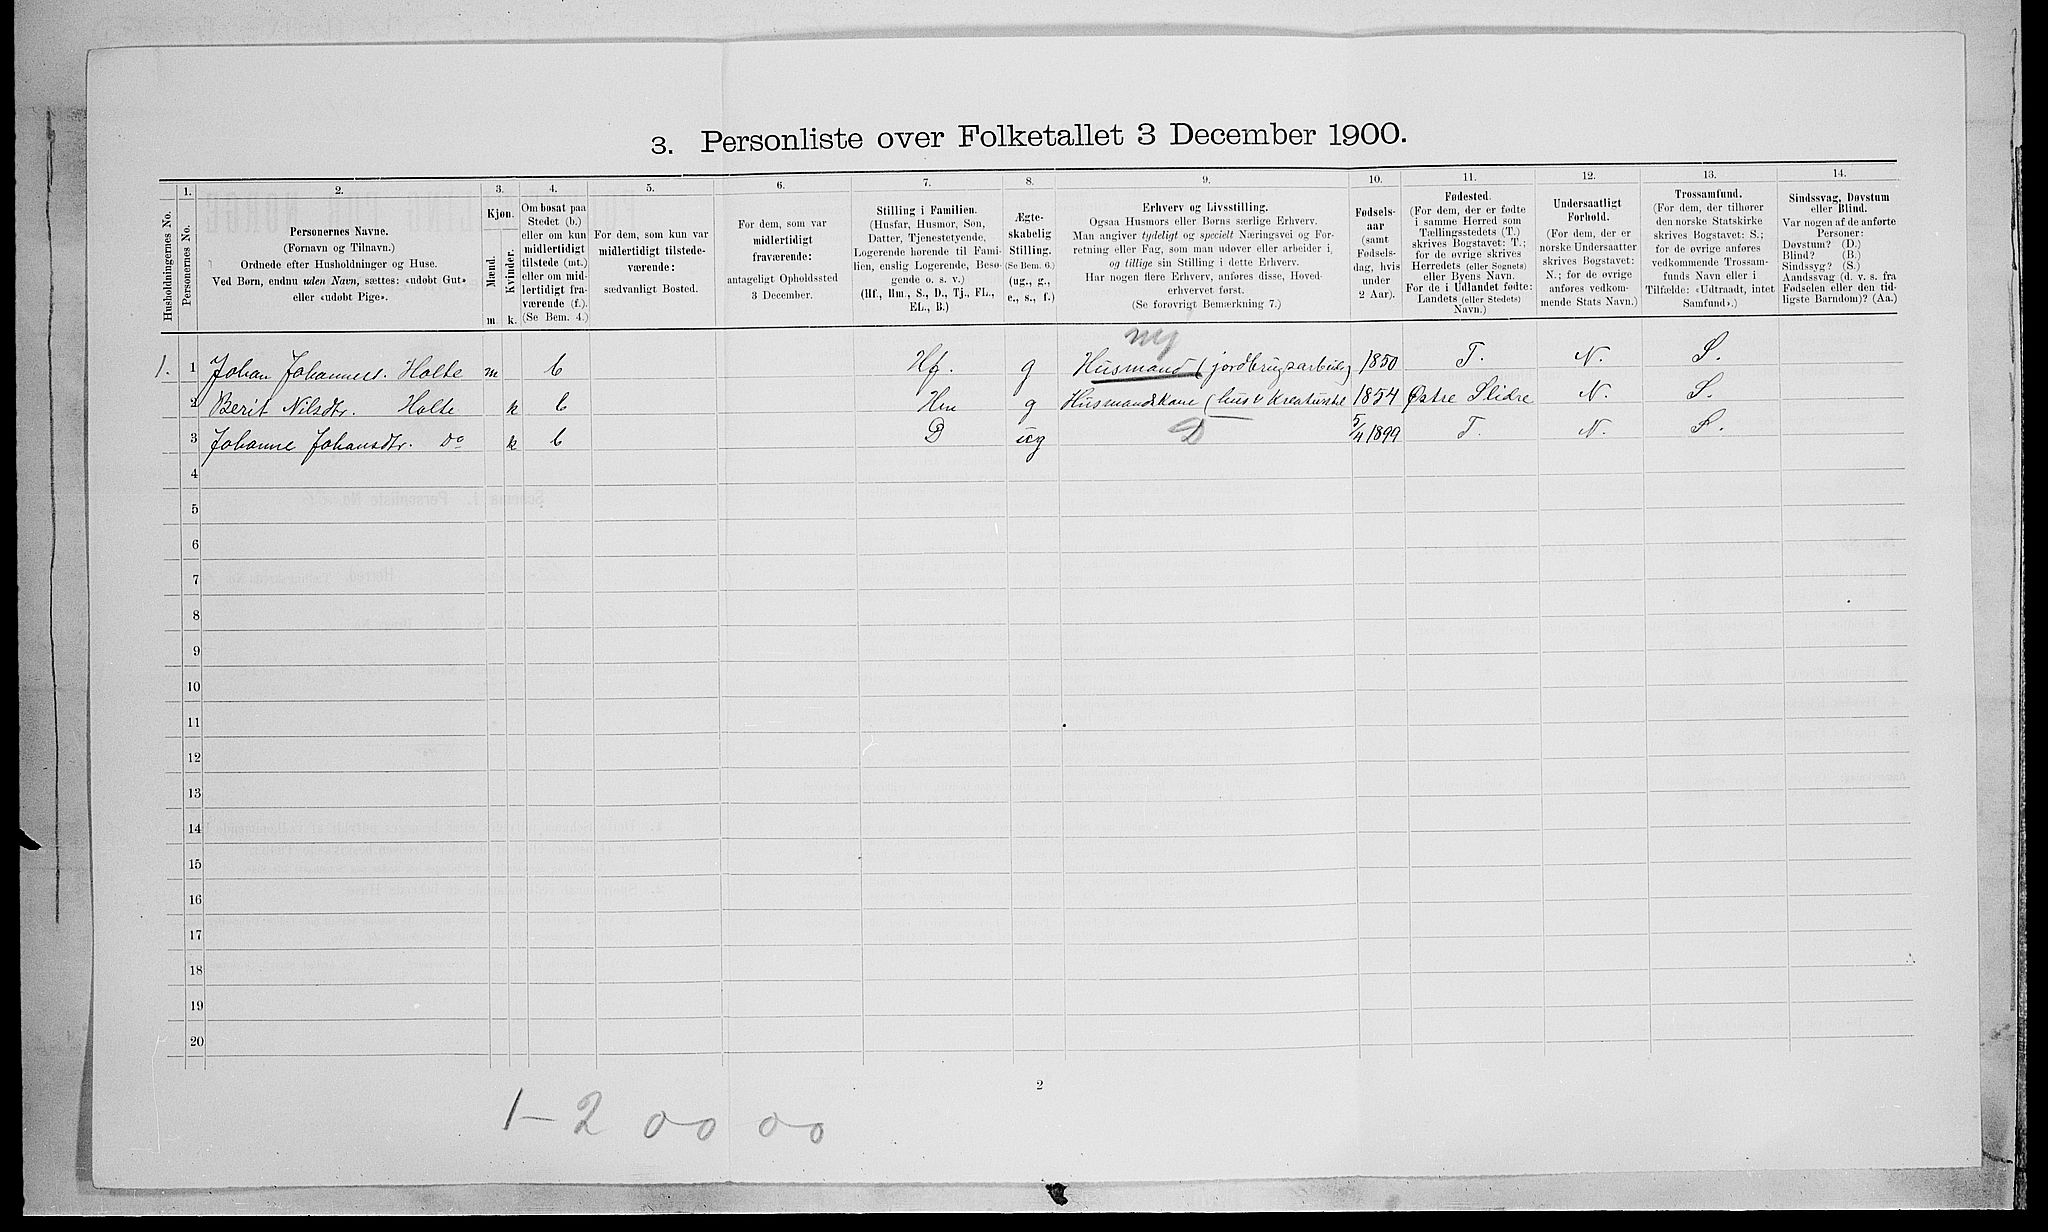 3. Personliste over Folketallet 3 December 1900.
1. 2. 3. 4. 5. 6. 7. 8. 9. 10. 11. 12. 13. 14.
Husholdningernes No.
Personernes No.
Personernes Navne.
(Fornavn og Tilnavn.)
Ordnede efter Husholdninger og Huse.
Ved Børn, endnu uden Navn, sættes: «udøbt Gut»
eller «udøbt Pige».
Kjøn.
Mænd.
Kvinder.
m. k.
Om bosat paa
Stedet (b.)
eller om kun
midlertidigt
tilstede (mt.)
eller om mid-
lertidigt fra-
værende (f.).
(Se Bem. 4.)
For dem, som kun var
midlertidigt tilstede-
værende:
sædvanligt Bosted.
For dem, som var
midlertidigt
fraværende:
antageligt Opholdssted
3 December.
Stilling i Familien.
(Husfar, Husmor, Søn,
Datter, Tjenestetyende,
Logerende hørende til Fami-
lien, enslig Logerende, Besø-
gende o. s. v.)
(Hf., Hm., S., D., Tj., FL.,
EL., B.)
Ægte-
skabelig
Stilling.
(Se Bem. 6.)
(ug., g.,
e., s., f.)
Erhverv og Livsstilling.
Ogsaa Husmors eller Børns særlige Erhverv.
Man angiver tydeligt og specielt Næringsvei og For-
retning eller Fag, som man udøver eller arbeider i,
og tillige sin Stilling i dette Erhverv.
Har nogen flere Erhverv, anføres disse, Hoved-
erhvervet først.
(Se forøvrigt Bemærkning 7.)
Fødsels-
aar
(samt
Fødsels-
dag, hvis
under
2 Aar).
Fødested.
(For dem, der er fødte
i samme Herred som
Tællingsstedets (T.)
skrives Bogstavet: T.;
for de øvrige skrives
Herredets (eller Sognets)
eller Byens Navn.
For de i Udlandet fødte:
Landets (eller Stedets)
Navn.)
Undersaatligt
Forhold.
(For dem, der er
norske Undersaatter
skrives Bogstavet:
N.; for de øvrige
anføres vedkom-
mende Stats Navn.)
Trossamfund.
(For dem, der tilhører
den norske Statskirke
skrives Bogstavet: S.;
for de øvrige anføres
vedkommende Trossam-
funds Navn eller i
Tilfælde: «Udtraadt, intet
Samfund».)
Sindssvag, Døvstum
eller Blind.
Var nogen af de anførte
Personer:
Døvstum? (D.)
Blind? (B.)
Sindssyg? (S.)
Aandssvag (d. v. s. fra
Fødselen eller den tid-
ligste Barndom)? (Aa.)
1. 1 Johan Johanness. Holte m b Hf. g Husmand (jordbrugsarbeide) 1850 T. N. S.
2 Berit Nilsdtr. Holte k b Hm g Husmandskone (hus 1854 Østre Slidre N. S.
3 Johanne Johansdtr. Do k b D ug D 5/4 1899 T. N. S.
4
5
6
7
8
9
10
11
12
13
14
15
16
17
18
19
20
2
1 - 2 00 00